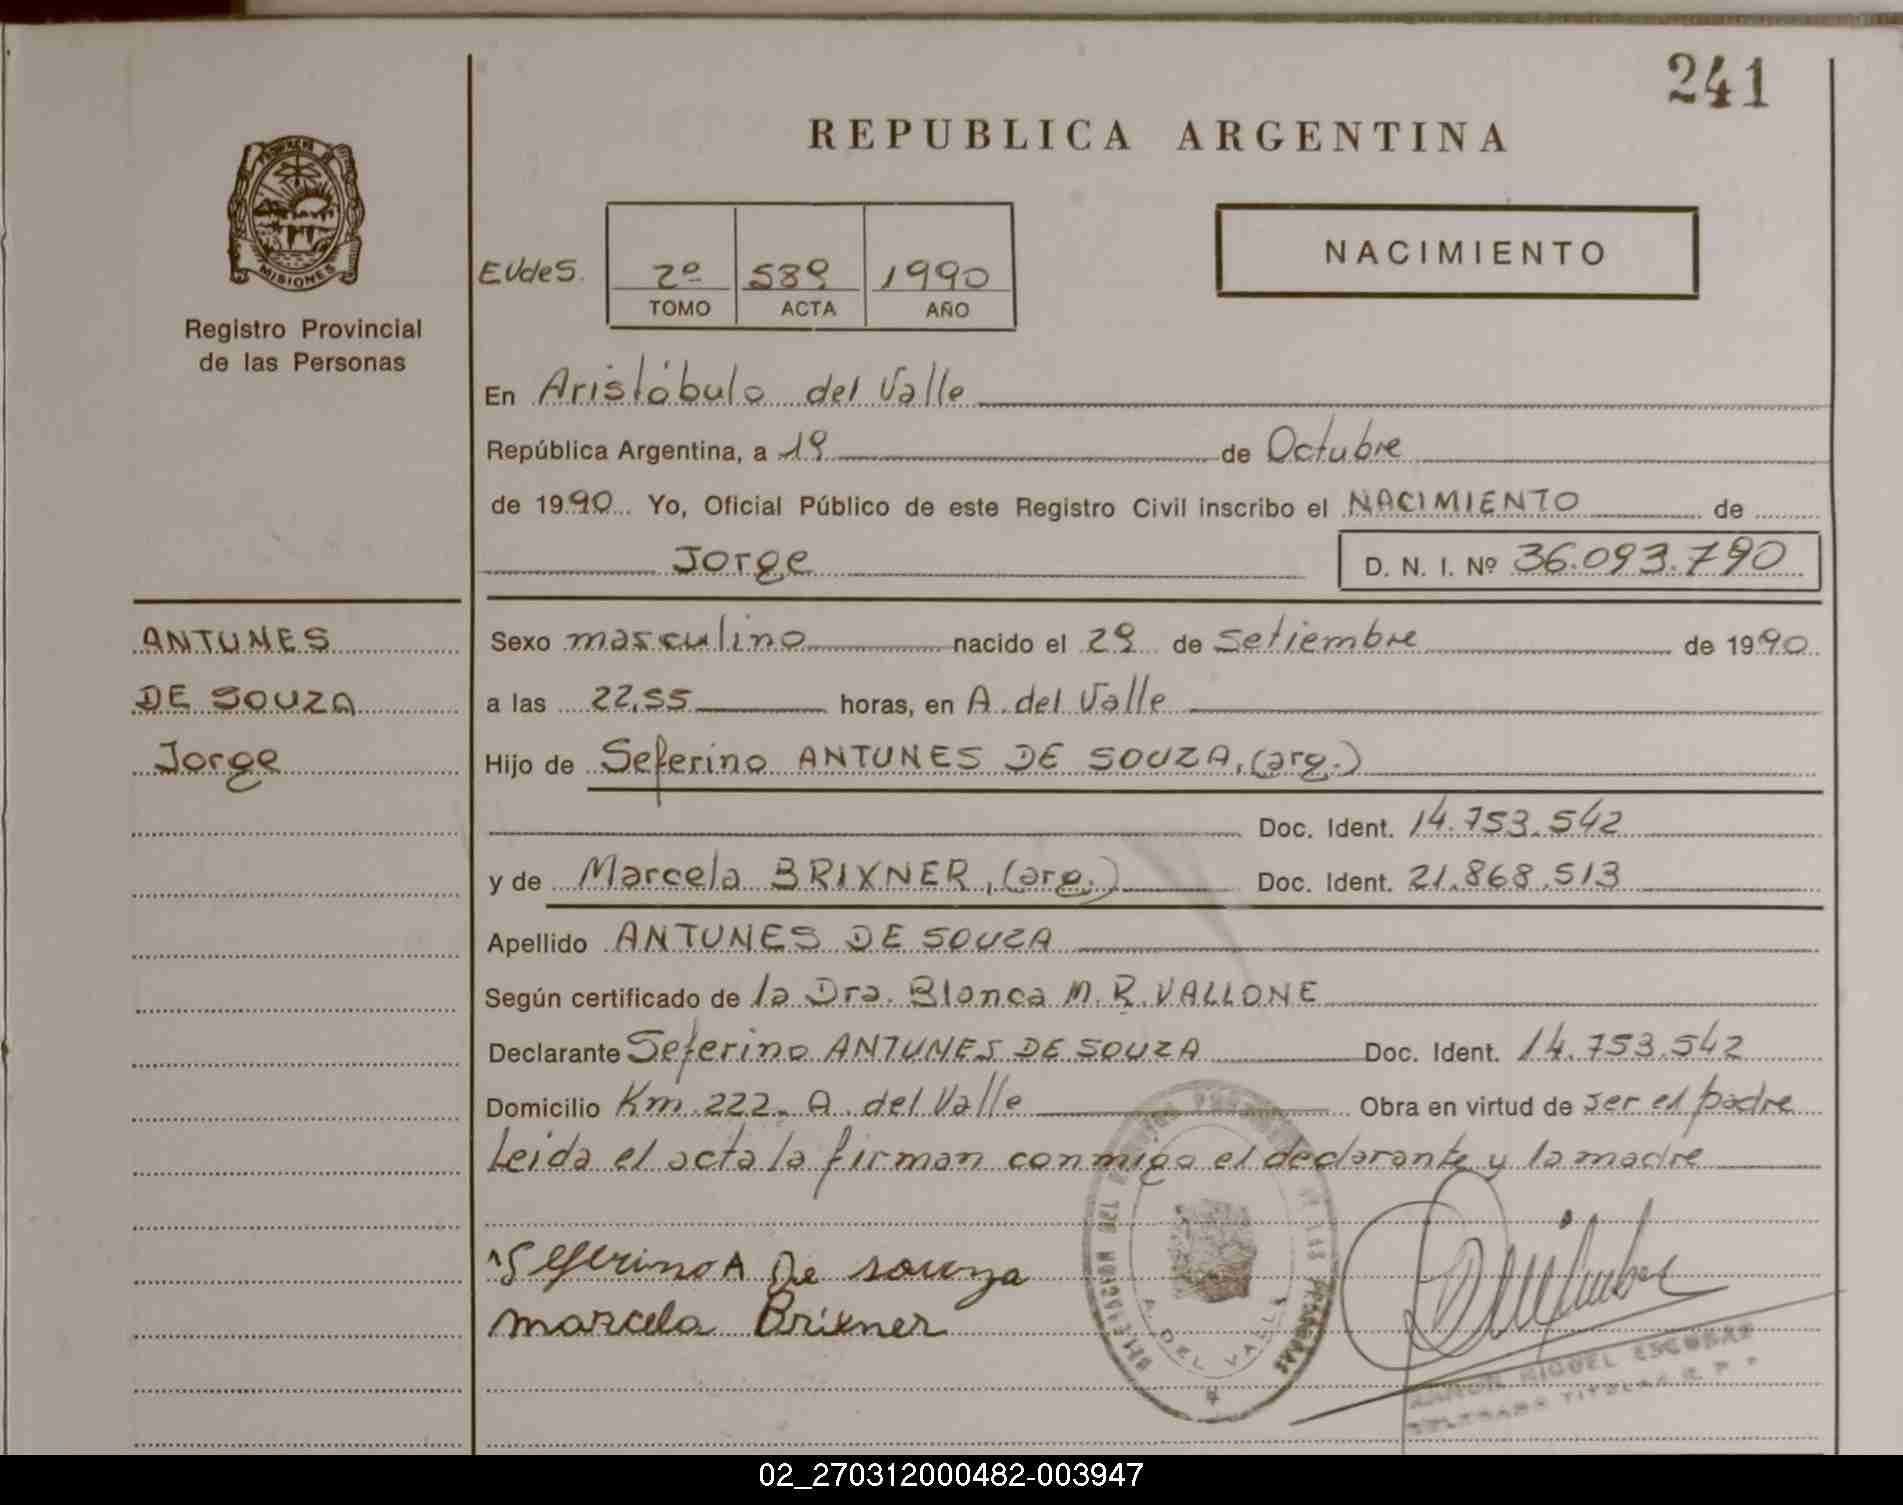 241
REPUBLICA ARGENTINA
PROVINCIA DE
MISIONES
Registro Provincial
de las Personas
EVdeS.
2º 589 1990
TOMO ACTA AÑO
NACIMIENTO
En Aristóbulo del Valle
República Argentina, a 19 de Octubre
de 1990 Yo, Oficial Público de este Registro Civil inscribo el NACIMIENTO de
Jorge D. N. I. Nº 36.093.790
ANTUNES
DE SOUZA
Jorge
Sexo masculino nacido el 29 de Setiembre de 1990
a las 22,55 horas, en A. del Valle
Hijo de Seferino ANTUNES DE SOUZA, (arg.)
Doc. Ident. 14.753.542
y de Marcela BRIXNER, (arg.) Doc. Ident. 21.868.513
Apellido ANTUNES DE SOUZA
Según certificado de la Dra. Blanca M. R. VALLONE
Declarante Seferino ANTUNES DE SOUZA Doc. Ident. 14.753.542
Domicilio Km. 222. A. del Valle Obra en virtud de ser el padre
Leida el acta la firman conmigo el declarante y la madre
Seferino A De souza
marcela Brixner
A. DEL VALLE
RAMON MIGUEL ESCOBAR
DELEGADO TITULAR R. P. P.
02_270312000482-003947